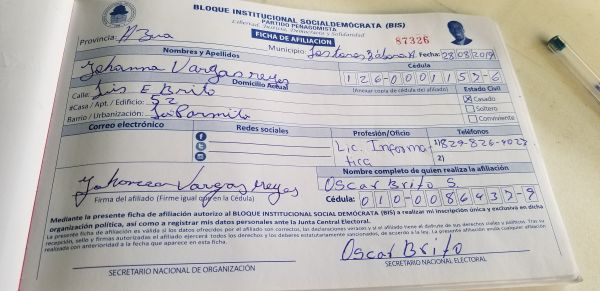 BLOQUE INSTITUCIONAL SOCIALDEMÓCRATA (BIS)
PARTIDO PENAGOMISTA
Libertad, Justicia, Democracia y Solidaridad
FICHA DE AFILIACION
87326
Provincia: Azua Municipio: Fecha: 28/08/2019
Nombres y Apellidos Cédula
Johanna Vargas reyes 126-0001153-6
Domicilio Actual (Anexar copia de cédula del afiliado) Estado Civil
Calle: Luis E Brito Casado
#Casa / Apt. / Edificio: 52 Soltero
Barrio / Urbanización: Conviviente
Correo electrónico Redes sociales Profesión/Oficio Teléfonos
Lic. Informatica 1) 829-826-4027
2)
Nombre completo de quien realiza la afiliación
Johanna Vargas reyes Oscar Brito S.
Firma del afiliado (Firme igual que en la Cédula) Cédula: 010-0086437-8
Mediante la presente ficha de afiliación autorizo al BLOQUE INSTITUCIONAL SOCIAL DEMÓCRATA (BIS) a realizar mi inscripción única y exclusiva en dicha
organización política, así como a registrar mis datos personales ante la Junta Central Electoral.
La presente ficha de afiliación es válida si los datos ofrecidos por el afiliado son correctos, las declaraciones veraces y si el afiliado tiene el disfrute de sus derechos civiles y políticos. Tras su
recepción, sello y firmas autorizadas el afiliado ejercerá todos los derechos y los deberes estatutariamente sancionados, de acuerdo a la ley. La presente afiliación anula cualquier afiliación
realizada con anterioridad a la fecha que aparece en esta ficha.
Oscar Brito
SECRETARIO NACIONAL DE ORGANIZACIÓN SECRETARIO NACIONAL ELECTORAL